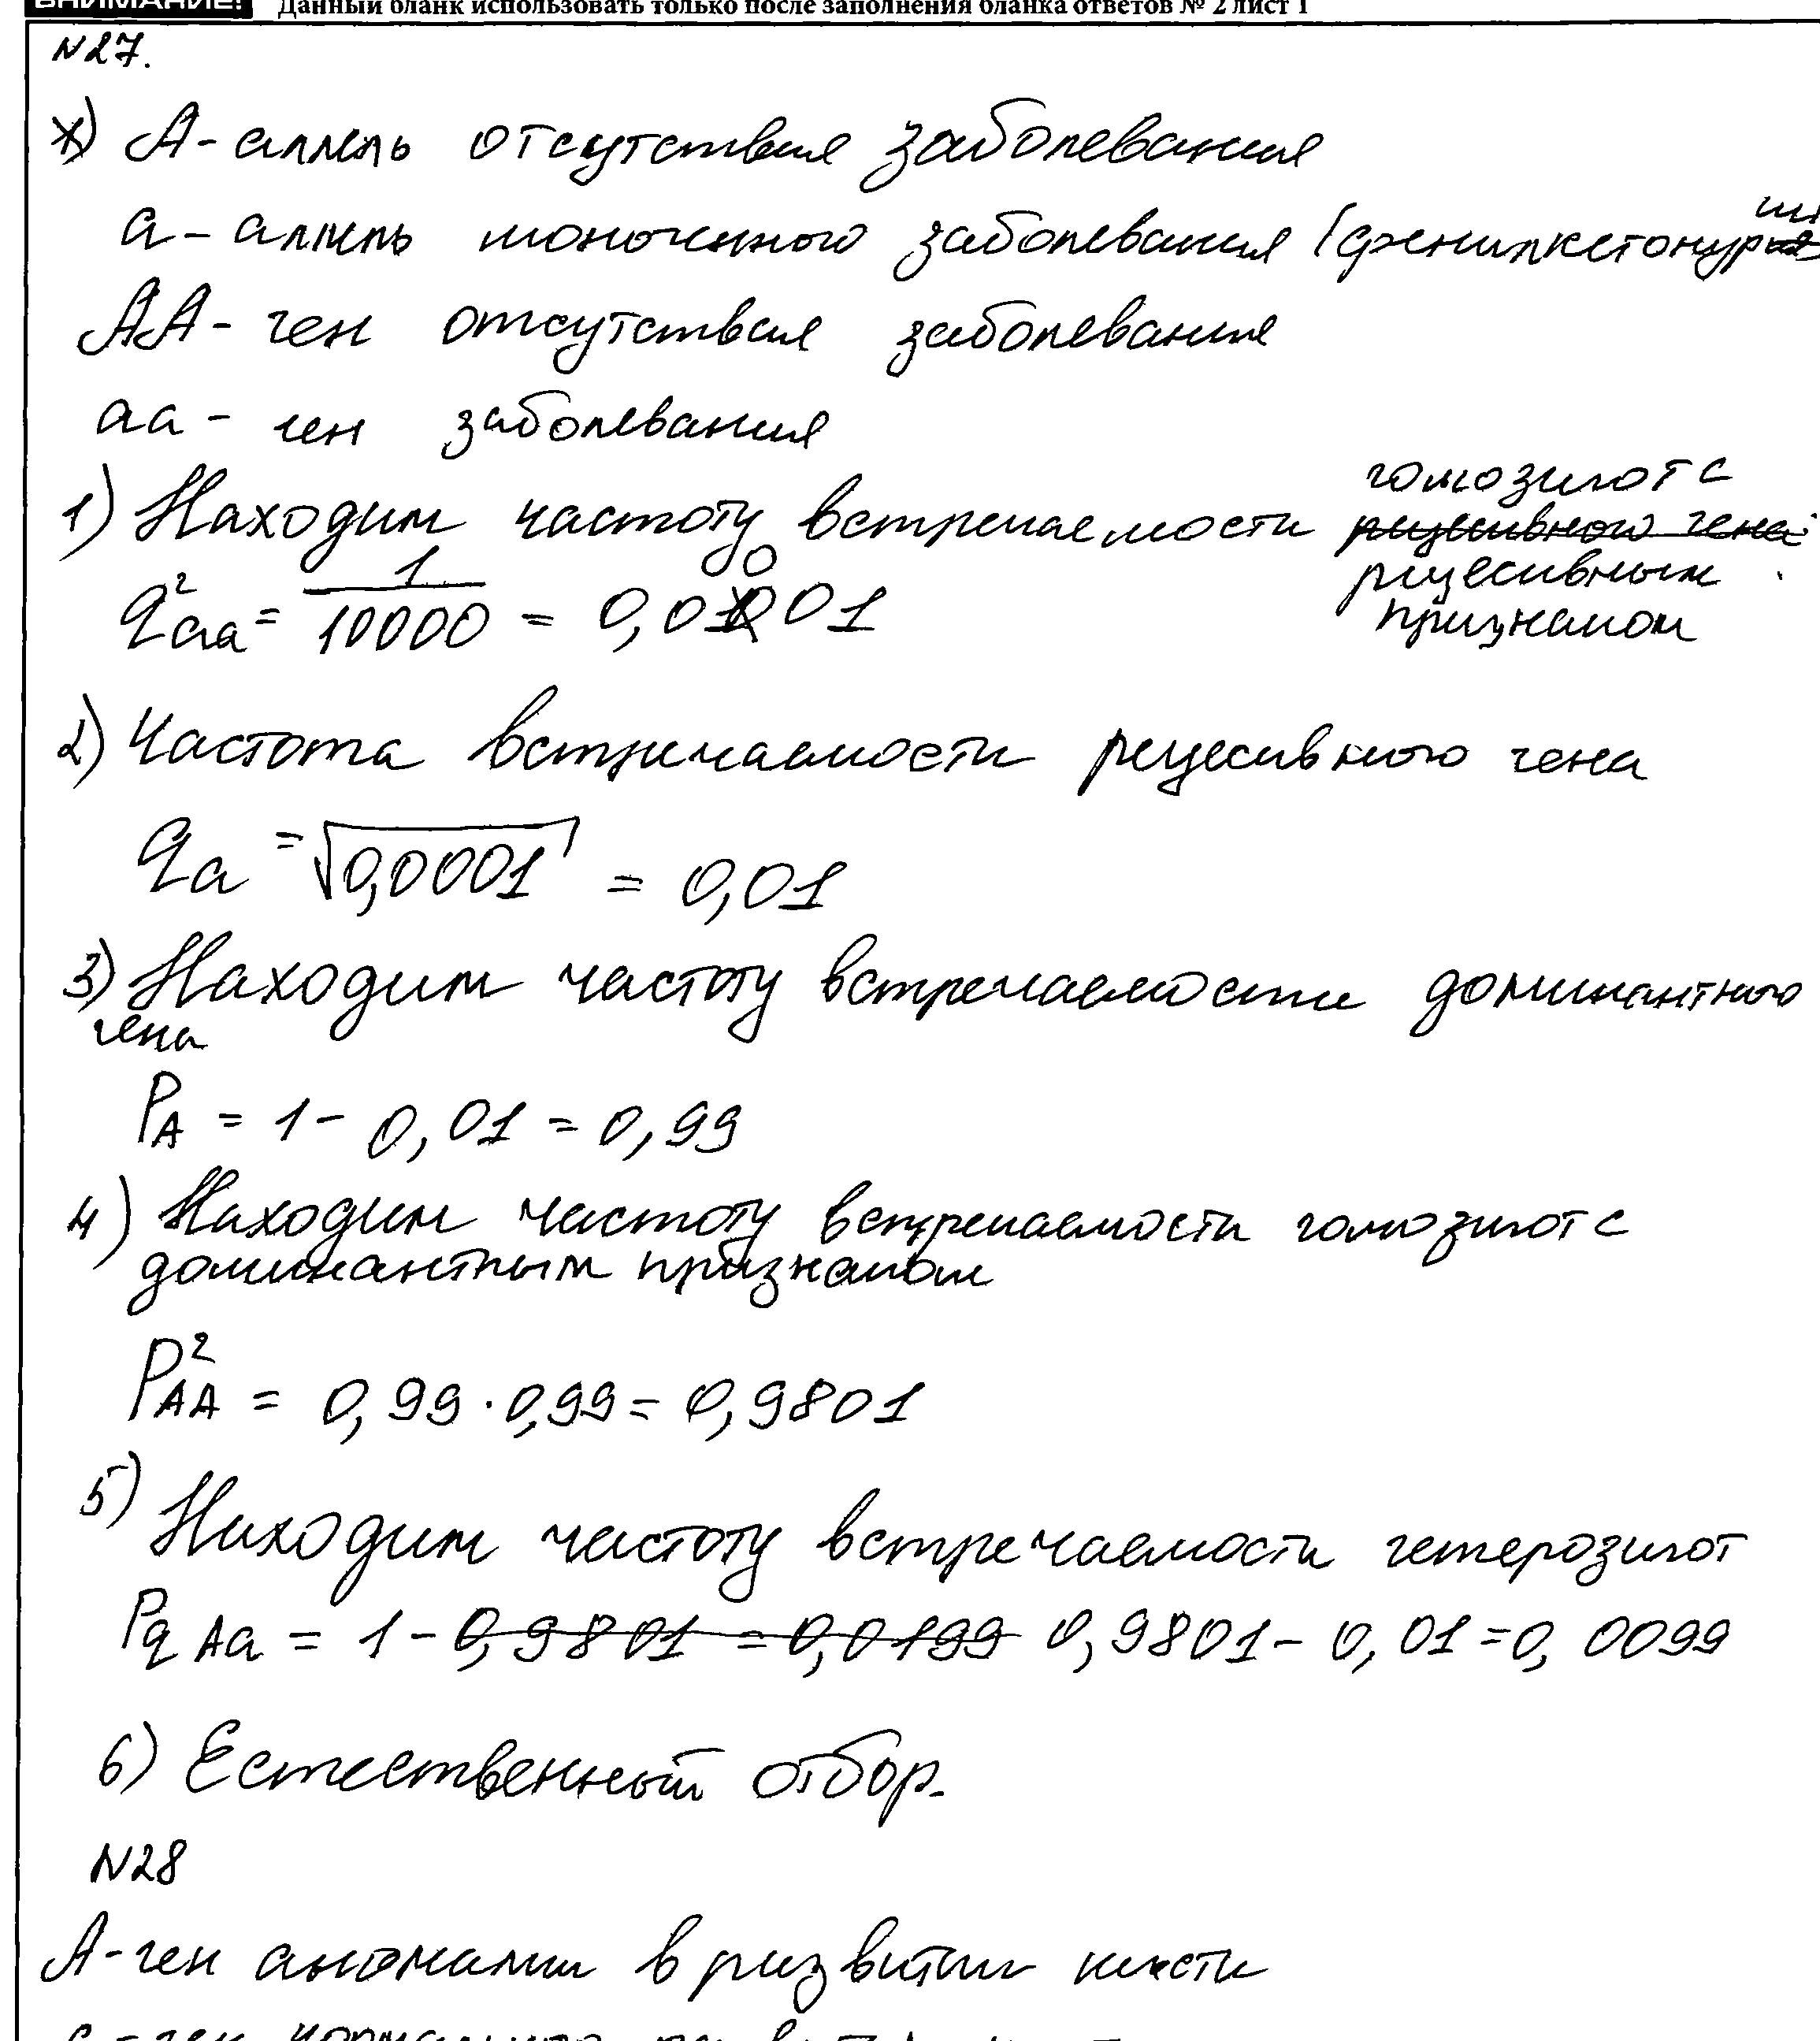 ВНИМАНИЕ! Данный бланк использовать только после заполнения бланка ответов № 2 лист 1
№27.
А - аллель отсутствия заболевания
а - аллель моногенного заболевания (фенилкетонурии
АА - ген отсутствия заболевания
аа - ген заболевания
1) Находим частоту встречаемости рецесивного гена гомозигот с
рецесивным
признаком
q²aa = 1/10000 = 0,0001
2) Частота встречаемости рецесивного гена
qa = √0,0001 = 0,01
3) Находим частоту встречаемости доминантного
гена
PA = 1 - 0,01 = 0,99
4) Находим частоту встречаемости гомозигот с
доминантным признаком
P²AA = 0,99 · 0,99 = 0,9801
5) Находим частоту встречаемости гетерозигот
Pq Aa = 1 - 0,9801 = 0,0199 0,9801 - 0,01 = 0,0099
6) Естественный отбор.
№28
А - ген аномалии в развитии кисти